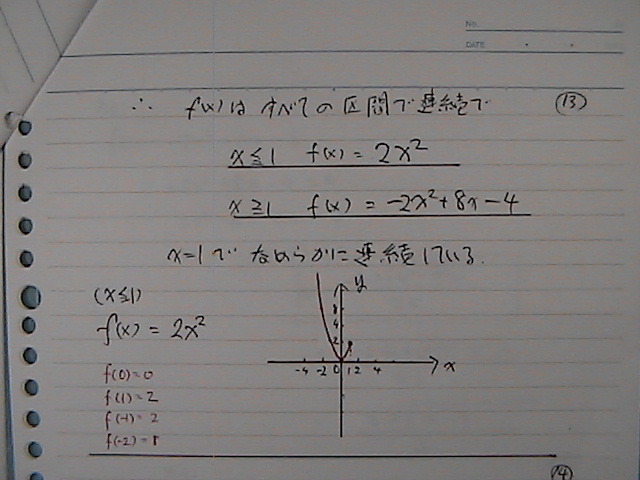 No.
DATE
∴ f(x)は すべての区間で連続で ⑬
x≦1 f(x) = 2x²
x≧1 f(x) = -2x²+8x-4
x=1で なめらかに連続している.
(x≦1)
f(x) = 2x²
f(0)=0
f(1)=2
f(-1)=2
y
8
4
2
-4 -2 0 1 2 4 x
⑭